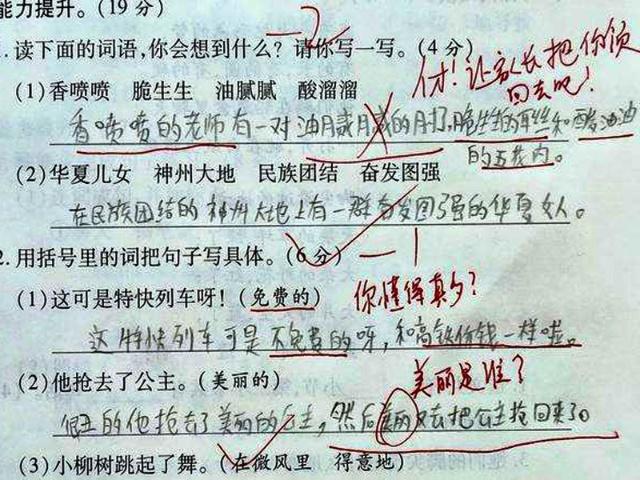 能力提升。(19分)
-2
1.读下面的词语,你会想到什么?请你写一写。(4分)
(1)香喷喷 脆生生 油腻腻 酸溜溜
付!让家长把你领回去吧!
香喷喷的老师有一对油腻腻的 和酸溜溜
的五花肉。
(2)华夏儿女 神州大地 民族团结 奋发图强
在民族团结的神州大地上有一群奋发图强的华夏女人。
2.用括号里的词把句子写具体。(6分) -1
(1)这可是特快列车呀!(免费的) 你懂得真多?
这特快列车可是不免费的呀,和高铁价钱一样啦。
(2)他抢去了公主。(美丽的) 美丽是谁?
的他抢去了美丽的公主,然后美丽又去把公主抢回来了。
(3)小柳树跳起了舞。(在微风里 得意地)